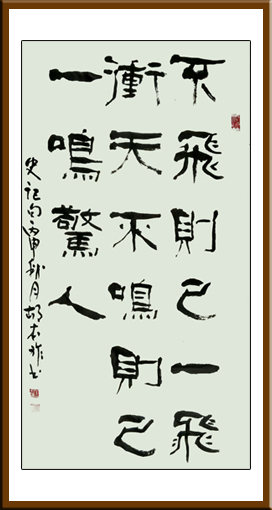 不飛則已一飛
衝天不鳴則已
一鳴驚人
史记句丙申秋月